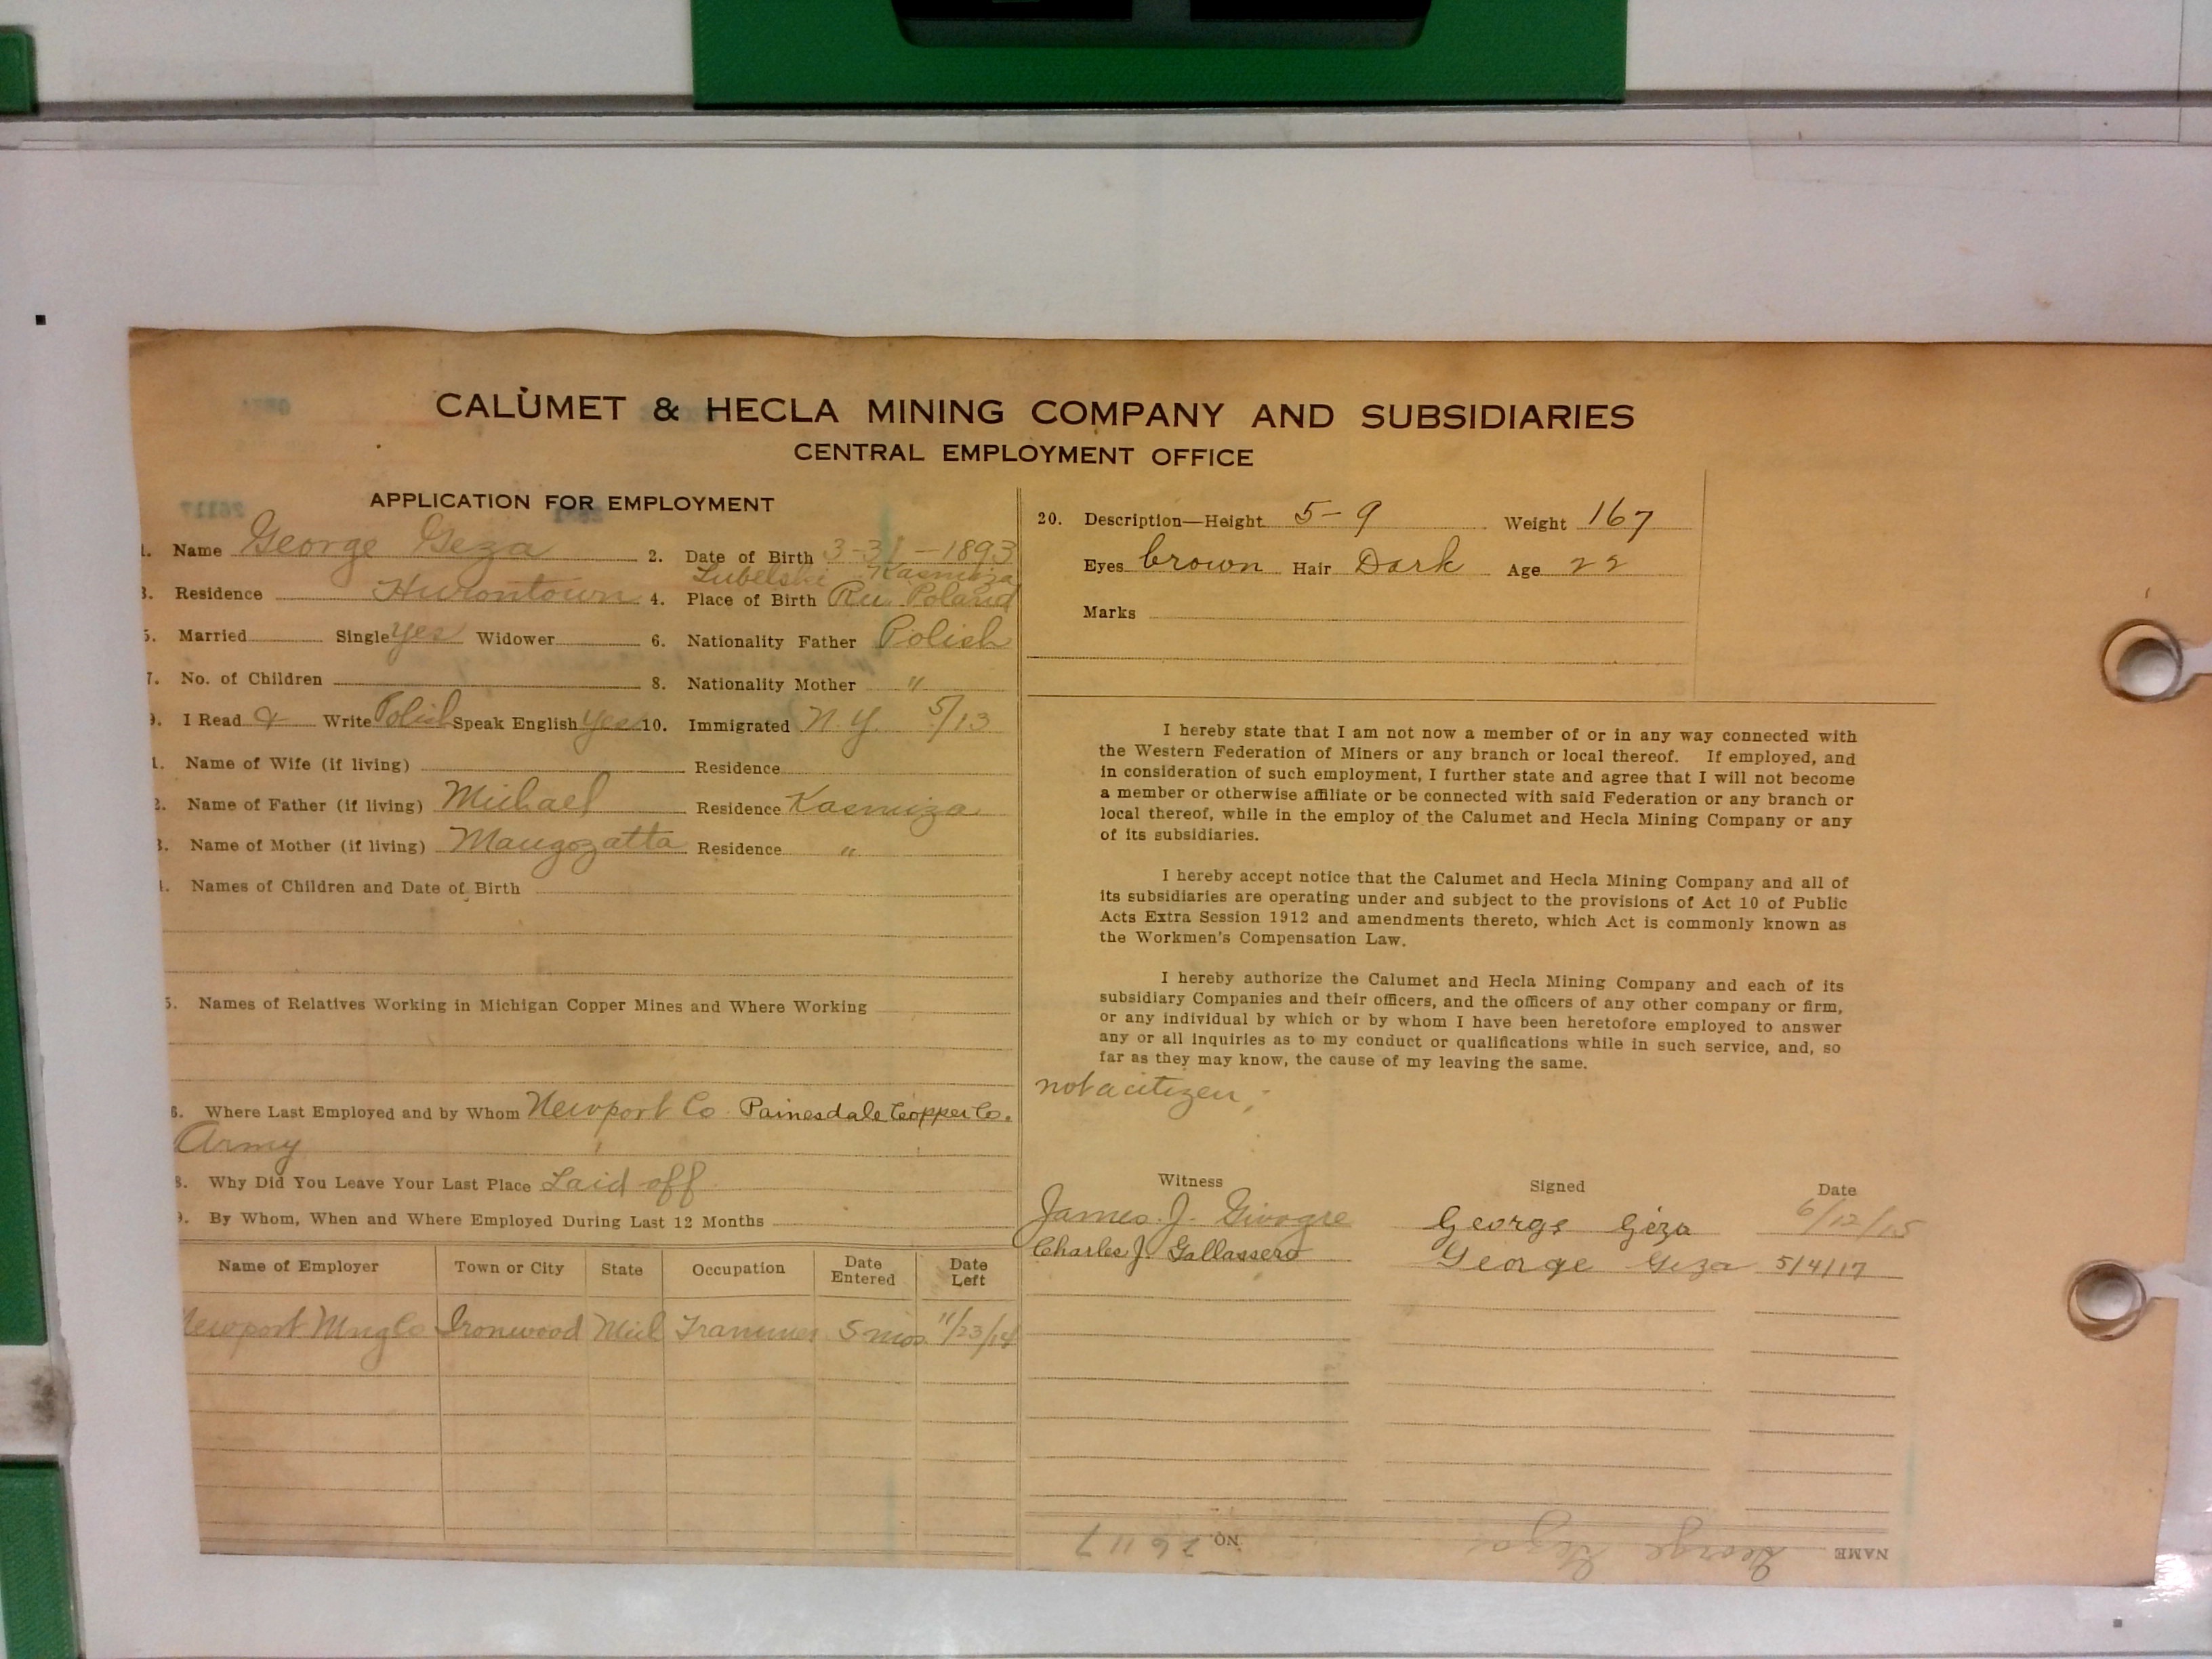 CALUMET & HECLA MINING COMPANY AND SUBSIDIARIES
CENTRAL EMPLOYMENT OFFICE
APPLICATION FOR EMPLOYMENT
26117
1. Name George Geza 2. Date of Birth 3-31-1893
Lubelski Kasmiza
3. Residence Hurontown 4. Place of Birth Ru. Poland
5. Married Single yes Widower 6. Nationality Father Polish
7. No. of Children 8. Nationality Mother "
9. I Read & Write Polish Speak English yes 10. Immigrated N.Y. 5/13
1. Name of Wife (if living) Residence
2. Name of Father (if living) Michael Residence Kasmiza
3. Name of Mother (if living) Maugozatta Residence "
4. Names of Children and Date of Birth
5. Names of Relatives Working in Michigan Copper Mines and Where Working
6. Where Last Employed and by Whom Newport Co. Painesdale Copper Co.
Army
8. Why Did You Leave Your Last Place Laid off
9. By Whom, When and Where Employed During Last 12 Months
Name of Employer Town or City State Occupation Date Entered Date Left
Newport Mng Co Ironwood Mich Trammer 5 mos. 11/23/14
20. Description—Height 5-9 Weight 167
Eyes brown Hair Dark Age 22
Marks
I hereby state that I am not now a member of or in any way connected with
the Western Federation of Miners or any branch or local thereof. If employed, and
in consideration of such employment, I further state and agree that I will not become
a member or otherwise affiliate or be connected with said Federation or any branch or
local thereof, while in the employ of the Calumet and Hecla Mining Company or any
of its subsidiaries.
I hereby accept notice that the Calumet and Hecla Mining Company and all of
its subsidiaries are operating under and subject to the provisions of Act 10 of Public
Acts Extra Session 1912 and amendments thereto, which Act is commonly known as
the Workmen's Compensation Law.
I hereby authorize the Calumet and Hecla Mining Company and each of its
subsidiary Companies and their officers, and the officers of any other company or firm,
or any individual by which or by whom I have been heretofore employed to answer
any or all inquiries as to my conduct or qualifications while in such service, and, so
far as they may know, the cause of my leaving the same.
not a citizen;
Witness Signed Date
James. J. George Géza 6/12/15
Charles J. Gallassero George Geza 5/4/17
NAME George Geza NO. 26117